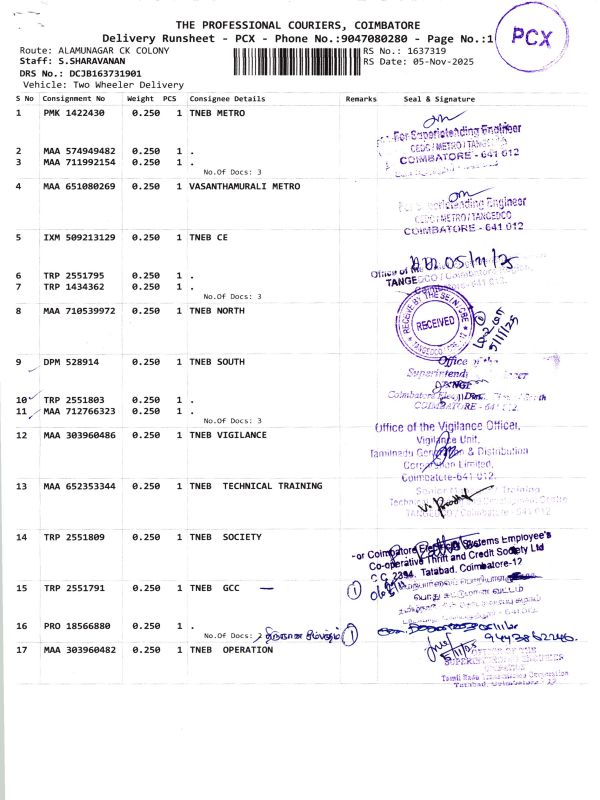 THE PROFESSIONAL COURIERS, COIMBATORE
Delivery Runsheet - PCX - Phone No.:9047080280 - Page No.:1
PCX
Route: ALAMUNAGAR CK COLONY
RS No.: 1637319
Staff: S.SHARAVANAN
RS Date: 05-Nov-2025
DRS No.: DCJB163731901
Vehicle: Two Wheeler Delivery
S No Consignment No Weight PCS Consignee Details Remarks Seal & Signature
1 PMK 1422430 0.250 1 TNEB METRO
For Superintending Engineer
CEDC/METRO/TANGEDCO
COIMBATORE - 641 012
2 MAA 574949482 0.250 1 .
3 MAA 711992154 0.250 1 .
No.Of Docs: 3
4 MAA 651080269 0.250 1 VASANTHAMURALI METRO
For Superintending Engineer
CEDC/METRO/TANGEDCO
COIMBATORE - 641 012
5 IXM 509213129 0.250 1 TNEB CE
05/11/25
Office of the
TANGEDCO / Coimbatore
6 TRP 2551795 0.250 1 .
7 TRP 1434362 0.250 1 .
No.Of Docs: 3
8 MAA 710539972 0.250 1 TNEB NORTH
RECEIVED
5/11/25
9 DPM 528914 0.250 1 TNEB SOUTH
Office of the
Superintending
COIMBATORE - 641 012.
10 TRP 2551803 0.250 1 .
11 MAA 712766323 0.250 1 .
No.Of Docs: 3
12 MAA 303960486 0.250 1 TNEB VIGILANCE
Office of the Vigilance Officer,
Vigilance Unit,
Tamilnadu Generation & Distribution
Corporation Limited,
Coimbatore-641 012.
13 MAA 652353344 0.250 1 TNEB TECHNICAL TRAINING
Training
Technical Development Centre
TANGEDCO / Coimbatore - 641 012
14 TRP 2551809 0.250 1 TNEB SOCIETY
For Coimbatore Electricity Systems Employee's
Co-operative Thrift and Credit Society Ltd
C C 2394, Tatabad, Coimbatore-12
15 TRP 2551791 0.250 1 TNEB GCC
1
16 PRO 18566880 0.250 1 .
No.Of Docs: 2
1
9443862246.
5/11/25
17 MAA 303960482 0.250 1 TNEB OPERATION
OFFICE OF THE
SUPERINTENDING ENGINEER
Tamil Nadu Corporation
Tatabad, Coimbatore - 12